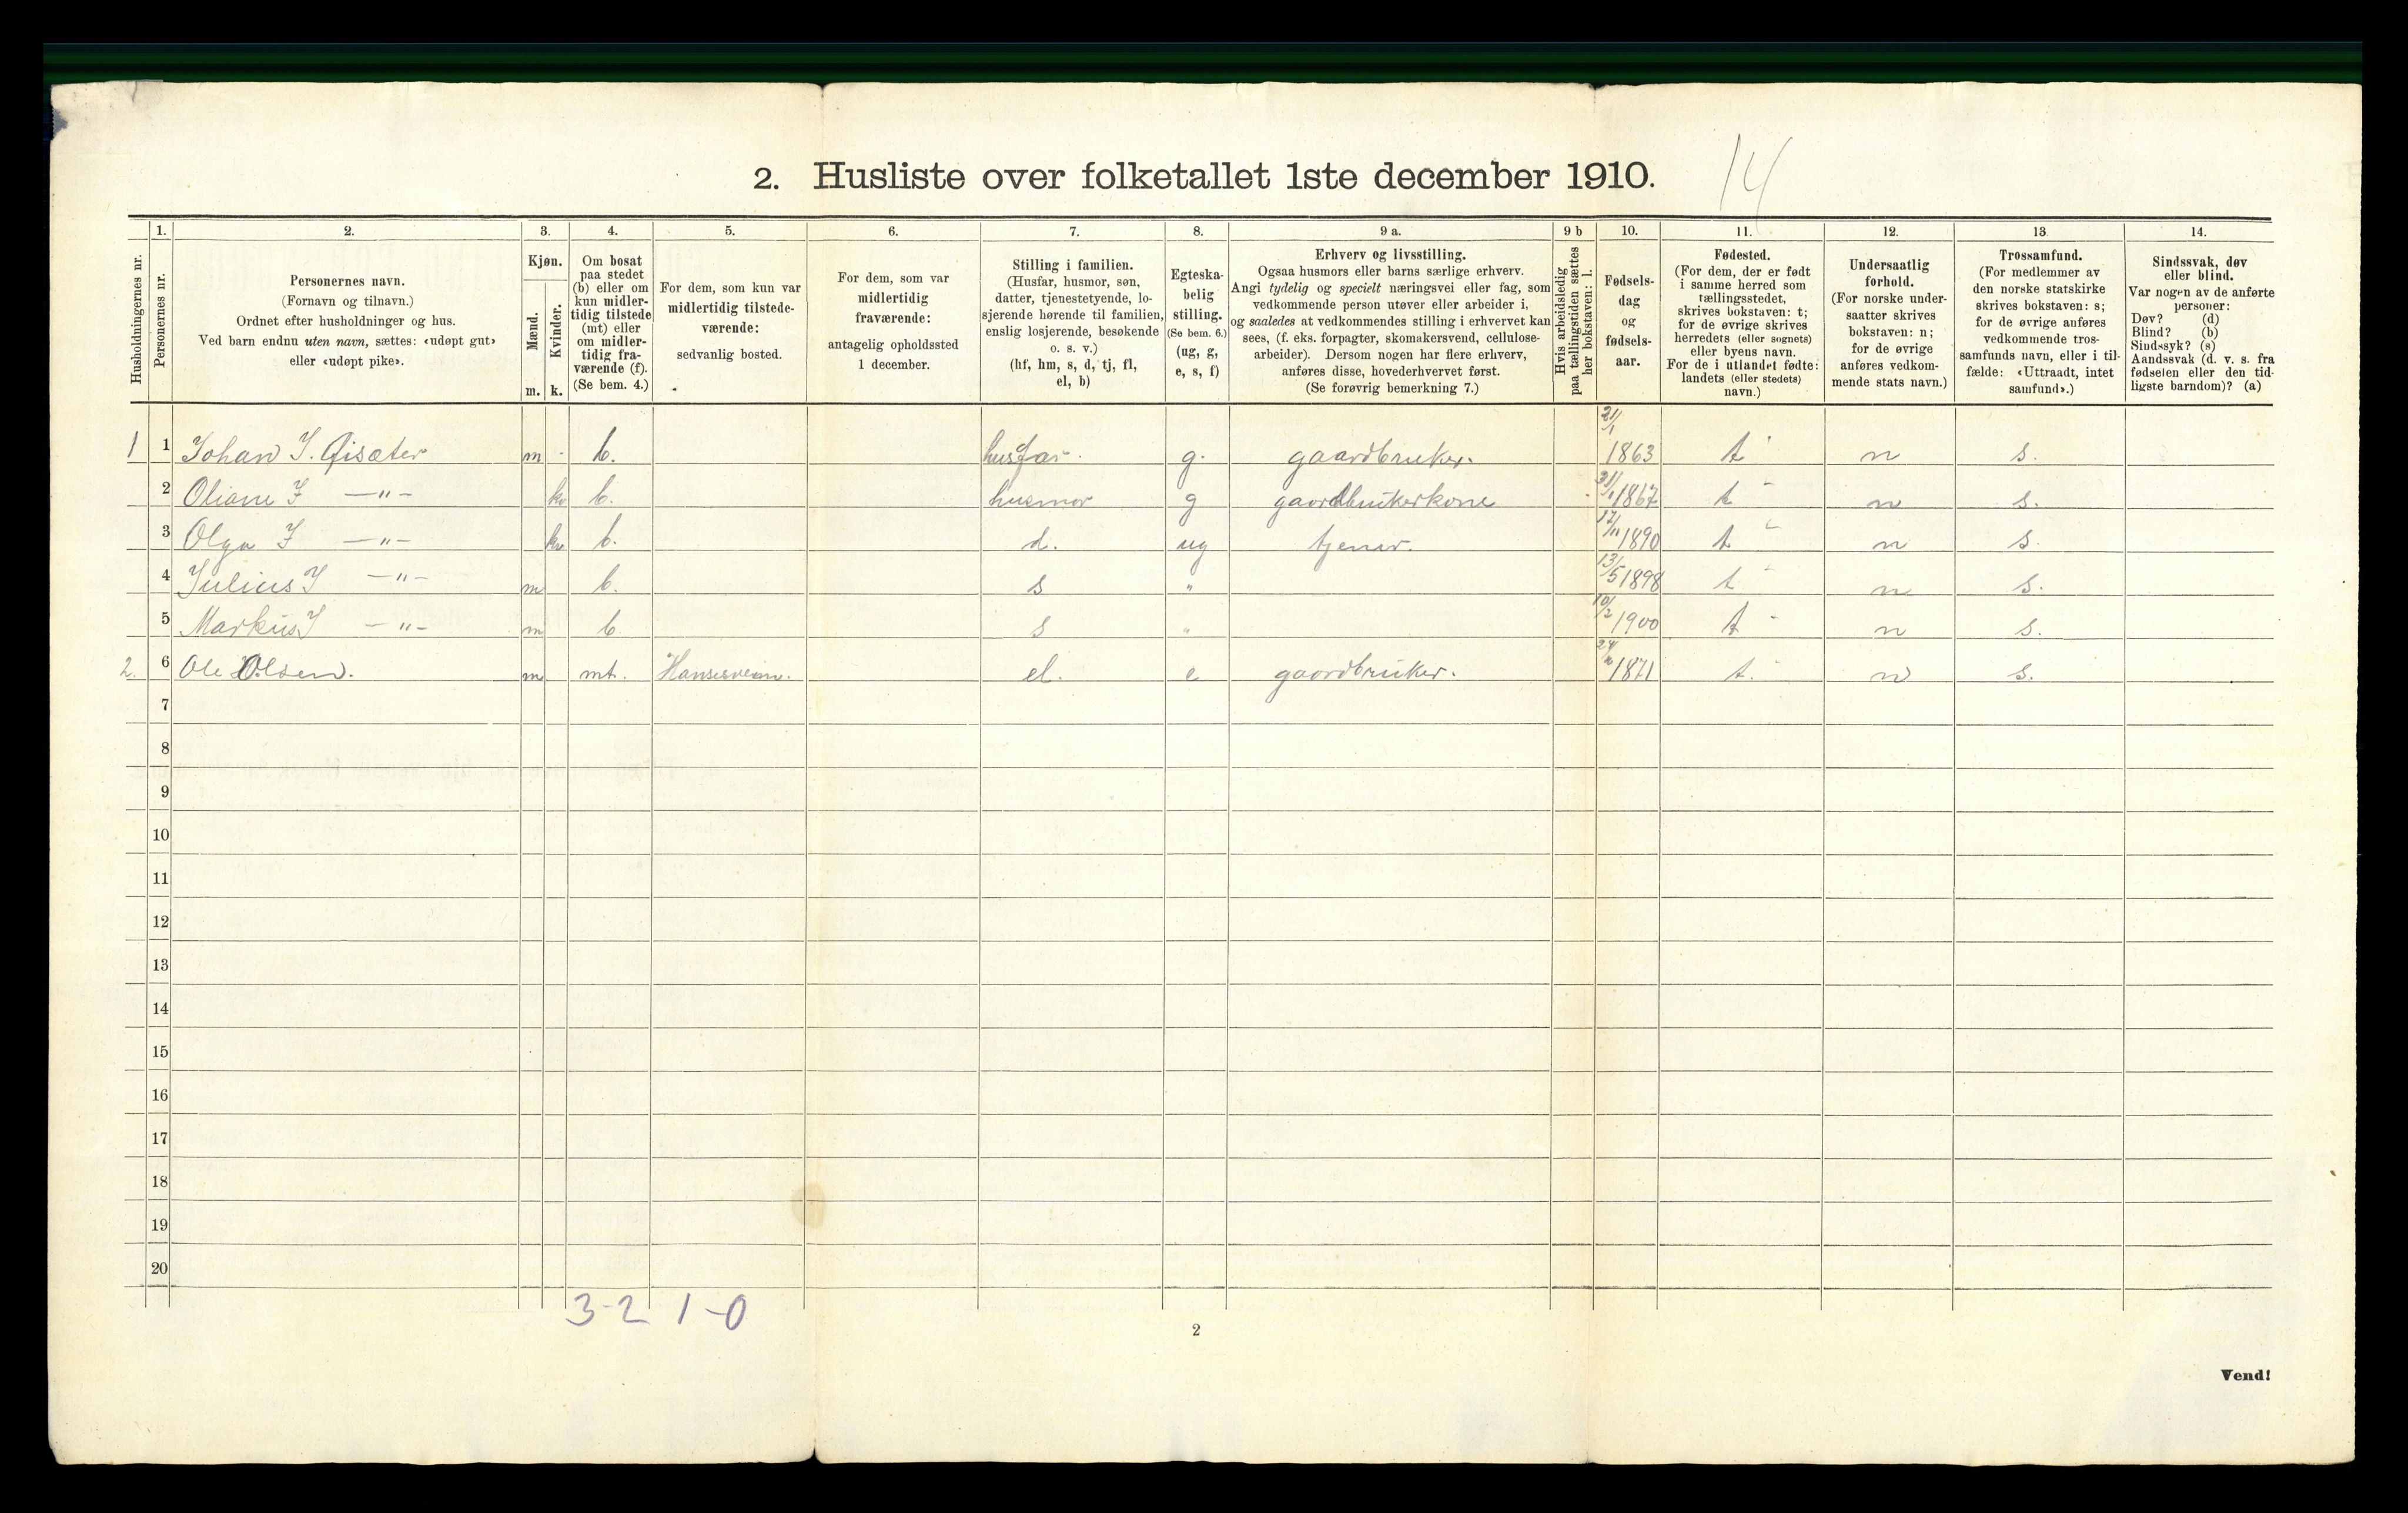 2. Husliste over folketallet 1ste december 1910. 14
Husholdningernes nr.
1. Personernes nr.
2. Personernes navn.
(Fornavn og tilnavn.)
Ordnet efter husholdninger og hus.
Ved barn endnu uten navn, sættes: «udøpt gut»
eller «udøpt pike».
3. Kjøn.
Mænd. m.
Kvinder. k.
4. Om bosat
paa stedet
(b) eller om
kun midler-
tidig tilstede
(mt) eller
om midler-
tidig fra-
værende (f).
(Se bem. 4.)
5. For dem, som kun var
midlertidig tilstede-
værende:
sedvanlig bosted.
6. For dem, som var
midlertidig
fraværende:
antagelig opholdssted
1 december.
7. Stilling i familien.
(Husfar, husmor, søn,
datter, tjenestetyende, lo-
sjerende hørende til familien,
enslig losjerende, besøkende
o. s. v.)
(hf, hm, s, d, tj, fl,
el, b)
8. Egteska-
belig
stilling.
(Se bem. 6.)
(ug, g,
e, s, f)
9 a. Erhverv og livsstilling.
Ogsaa husmors eller barns særlige erhverv.
Angi tydelig og specielt næringsvei eller fag, som
vedkommende person utøver eller arbeider i,
og saaledes at vedkommendes stilling i erhvervet kan
sees, (f. eks. forpagter, skomakersvend, cellulose-
arbeider). Dersom nogen har flere erhverv,
anføres disse, hovederhvervet først.
(Se forøvrig bemerkning 7.)
9 b Hvis arbeidsledig
paa tællingstiden sættes
her bokstaven: l.
10. Fødsels-
dag
og
fødsels-
aar.
11. Fødested.
(For dem, der er født
i samme herred som
tællingsstedet,
skrives bokstaven: t;
for de øvrige skrives
herredets (eller sognets)
eller byens navn.
For de i utlandet fødte:
landets (eller stedets)
navn.)
12. Undersaatlig
forhold.
(For norske under-
saatter skrives
bokstaven: n;
for de øvrige
anføres vedkom-
mende stats navn.)
13 Trossamfund.
(For medlemmer av
den norske statskirke
skrives bokstaven: s;
for de øvrige anføres
vedkommende tros-
samfunds navn, eller i til-
fælde: «Uttraadt, intet
samfund».)
14. Sindssvak, døv
eller blind.
Var nogen av de anførte
personer:
Døv? (d)
Blind? (b)
Sindssyk? (s)
Aandssvak (d. v. s. fra
fødselen eller den tid-
ligste barndom)? (a)
1 1 Johan J. Gisæter m - b. husfar. g. gaardbruker. 21/1 1863 t n s.
2 Oliane J —"— kv b. husmor g gaardbrukerkone 31/1 1867 t n s.
3 Olga J —"— kv b. d. ug tjener. 17/11 1890 t n s.
4 Julius J —"— m b. s " 13/5 1898 t n s.
5 Markus J —"— m b s " 10/2 1900 t n s.
2. 6 Ole Olsen. m mt. el. e gaardbruker. 1871 t. n s.
7
8
9
10
11
12
13
14
15
16
17
18
19
20
3-2 1-0
2
Vend!